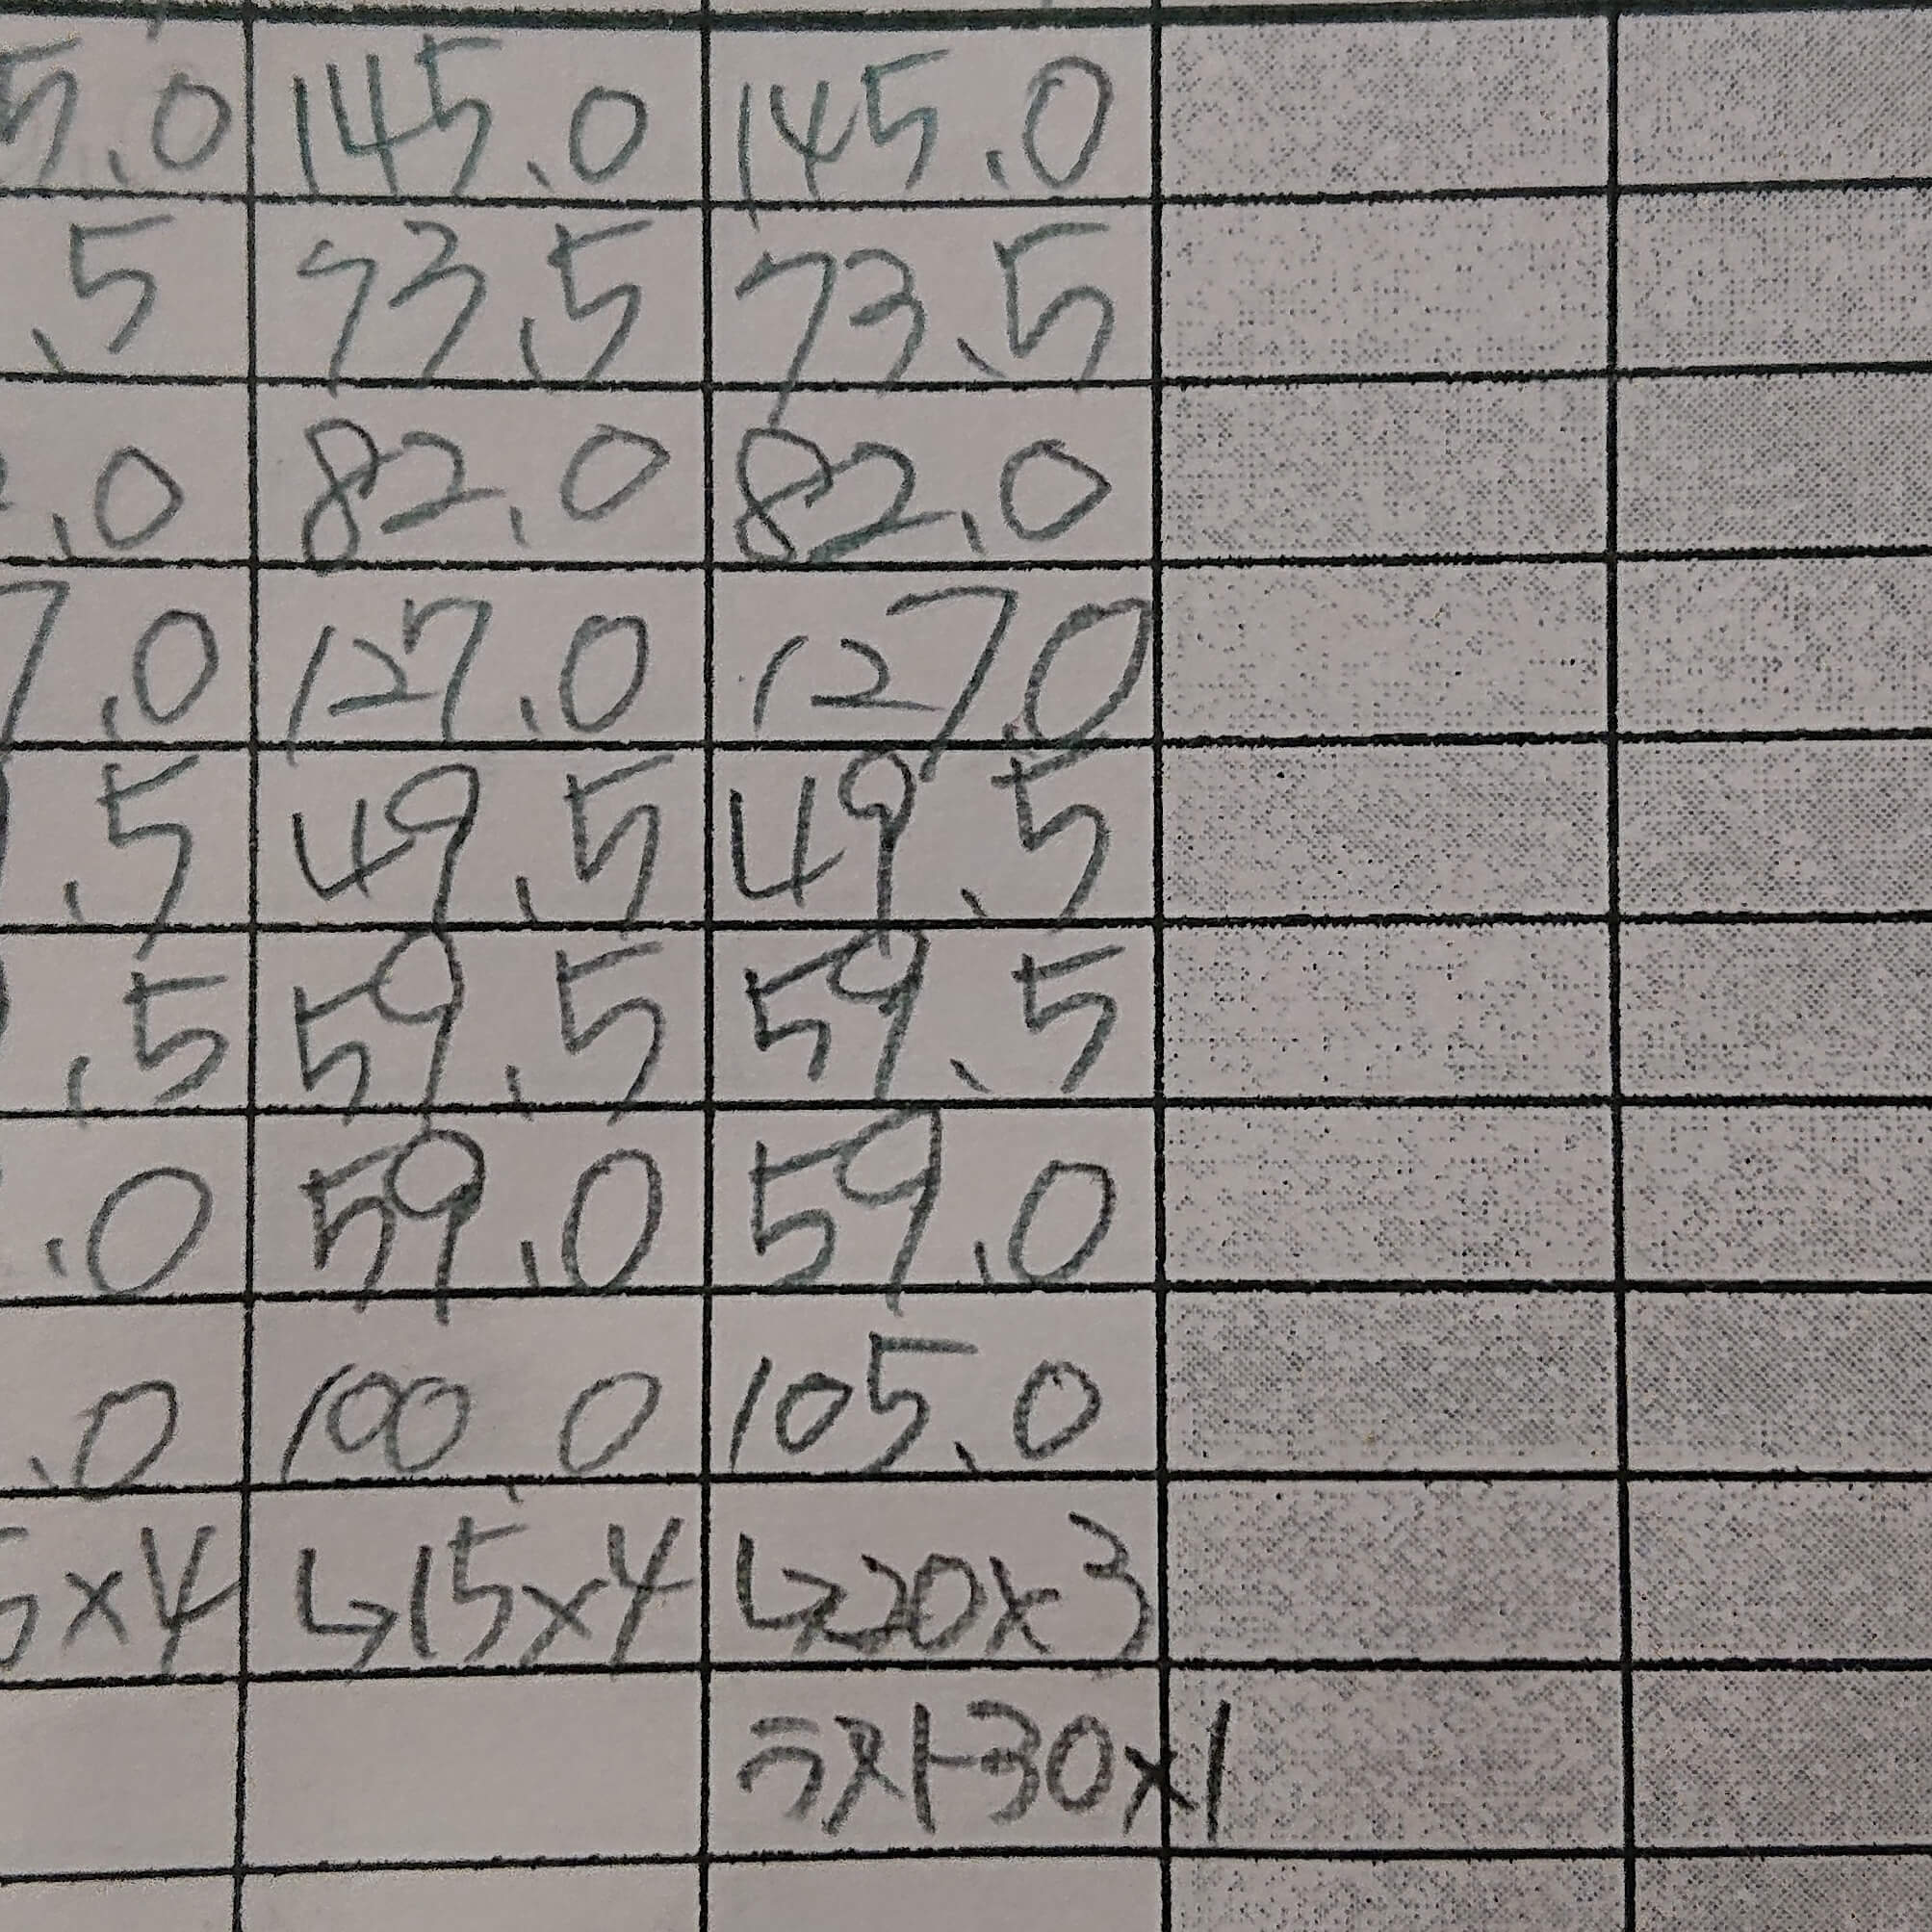 5.0 145.0 145.0
.5 73.5 73.5
.0 82.0 82.0
7.0 127.0 127.0
.5 49.5 49.5
.5 59.5 59.5
.0 59.0 59.0
.0 100.0 105.0
5×4 ↳15×4 ↳20×3
ラスト30×1